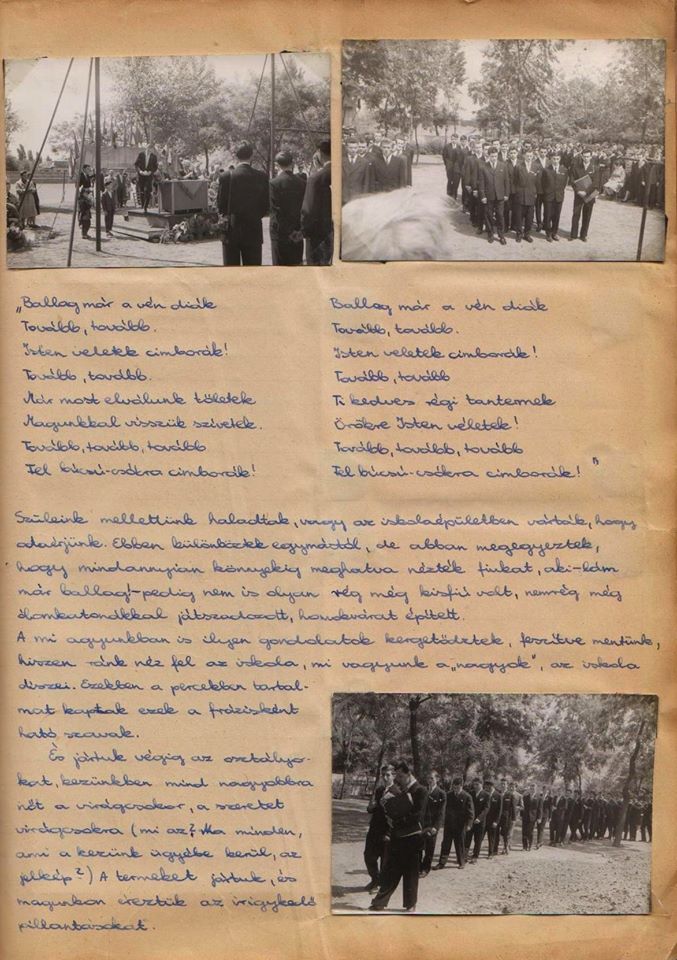 „Ballag már a vén diák
Tovább, tovább.
Isten veletek cimborák!
Tovább, tovább.
Már most elválunk tőletek
Magunkkal visszük szivetek.
Tovább, tovább, tovább
Fel búcsú-csókra cimborák!
Ballag már a vén diák
Tovább, tovább.
Isten veletek cimborák!
Tovább, tovább
Ti kedves régi tantermek
Örökre Isten véletek!
Tovább, tovább, tovább
Fel búcsú-csókra cimborák! "
Szüleink mellettünk haladtak, vagy az iskolaépületben várták, hogy
odaérjünk. Ebben különböztek egymástól, de abban megegyeztek,
hogy mindannyian könnyekig meghatva nézték fiukat, aki-lám
már ballag!-pedig nem is olyan rég még kisfiú volt, nemrég még
ólomkatonákkal játszadozott, homokvárat épített.
A mi agyunkban is ilyen gondolatok kergetőztek, feszítve mentünk,
hiszen ránk néz fel az iskola, mi vagyunk a „nagyok", az iskola
díszei. Ezekben a percekben tartal-
mat kaptak ezek a frázisként
ható szavak.
És jártuk végig az osztályo-
kat, kezünkben mind nagyobbra
nőt a virágcsokor, a szeretet
virágcsokra (mi az? Ma minden,
ami a kezünk ügyébe kerül, az
jelkép?) A termeket jártuk, és
magunkon éreztük az irigykedő
pillantásokat.